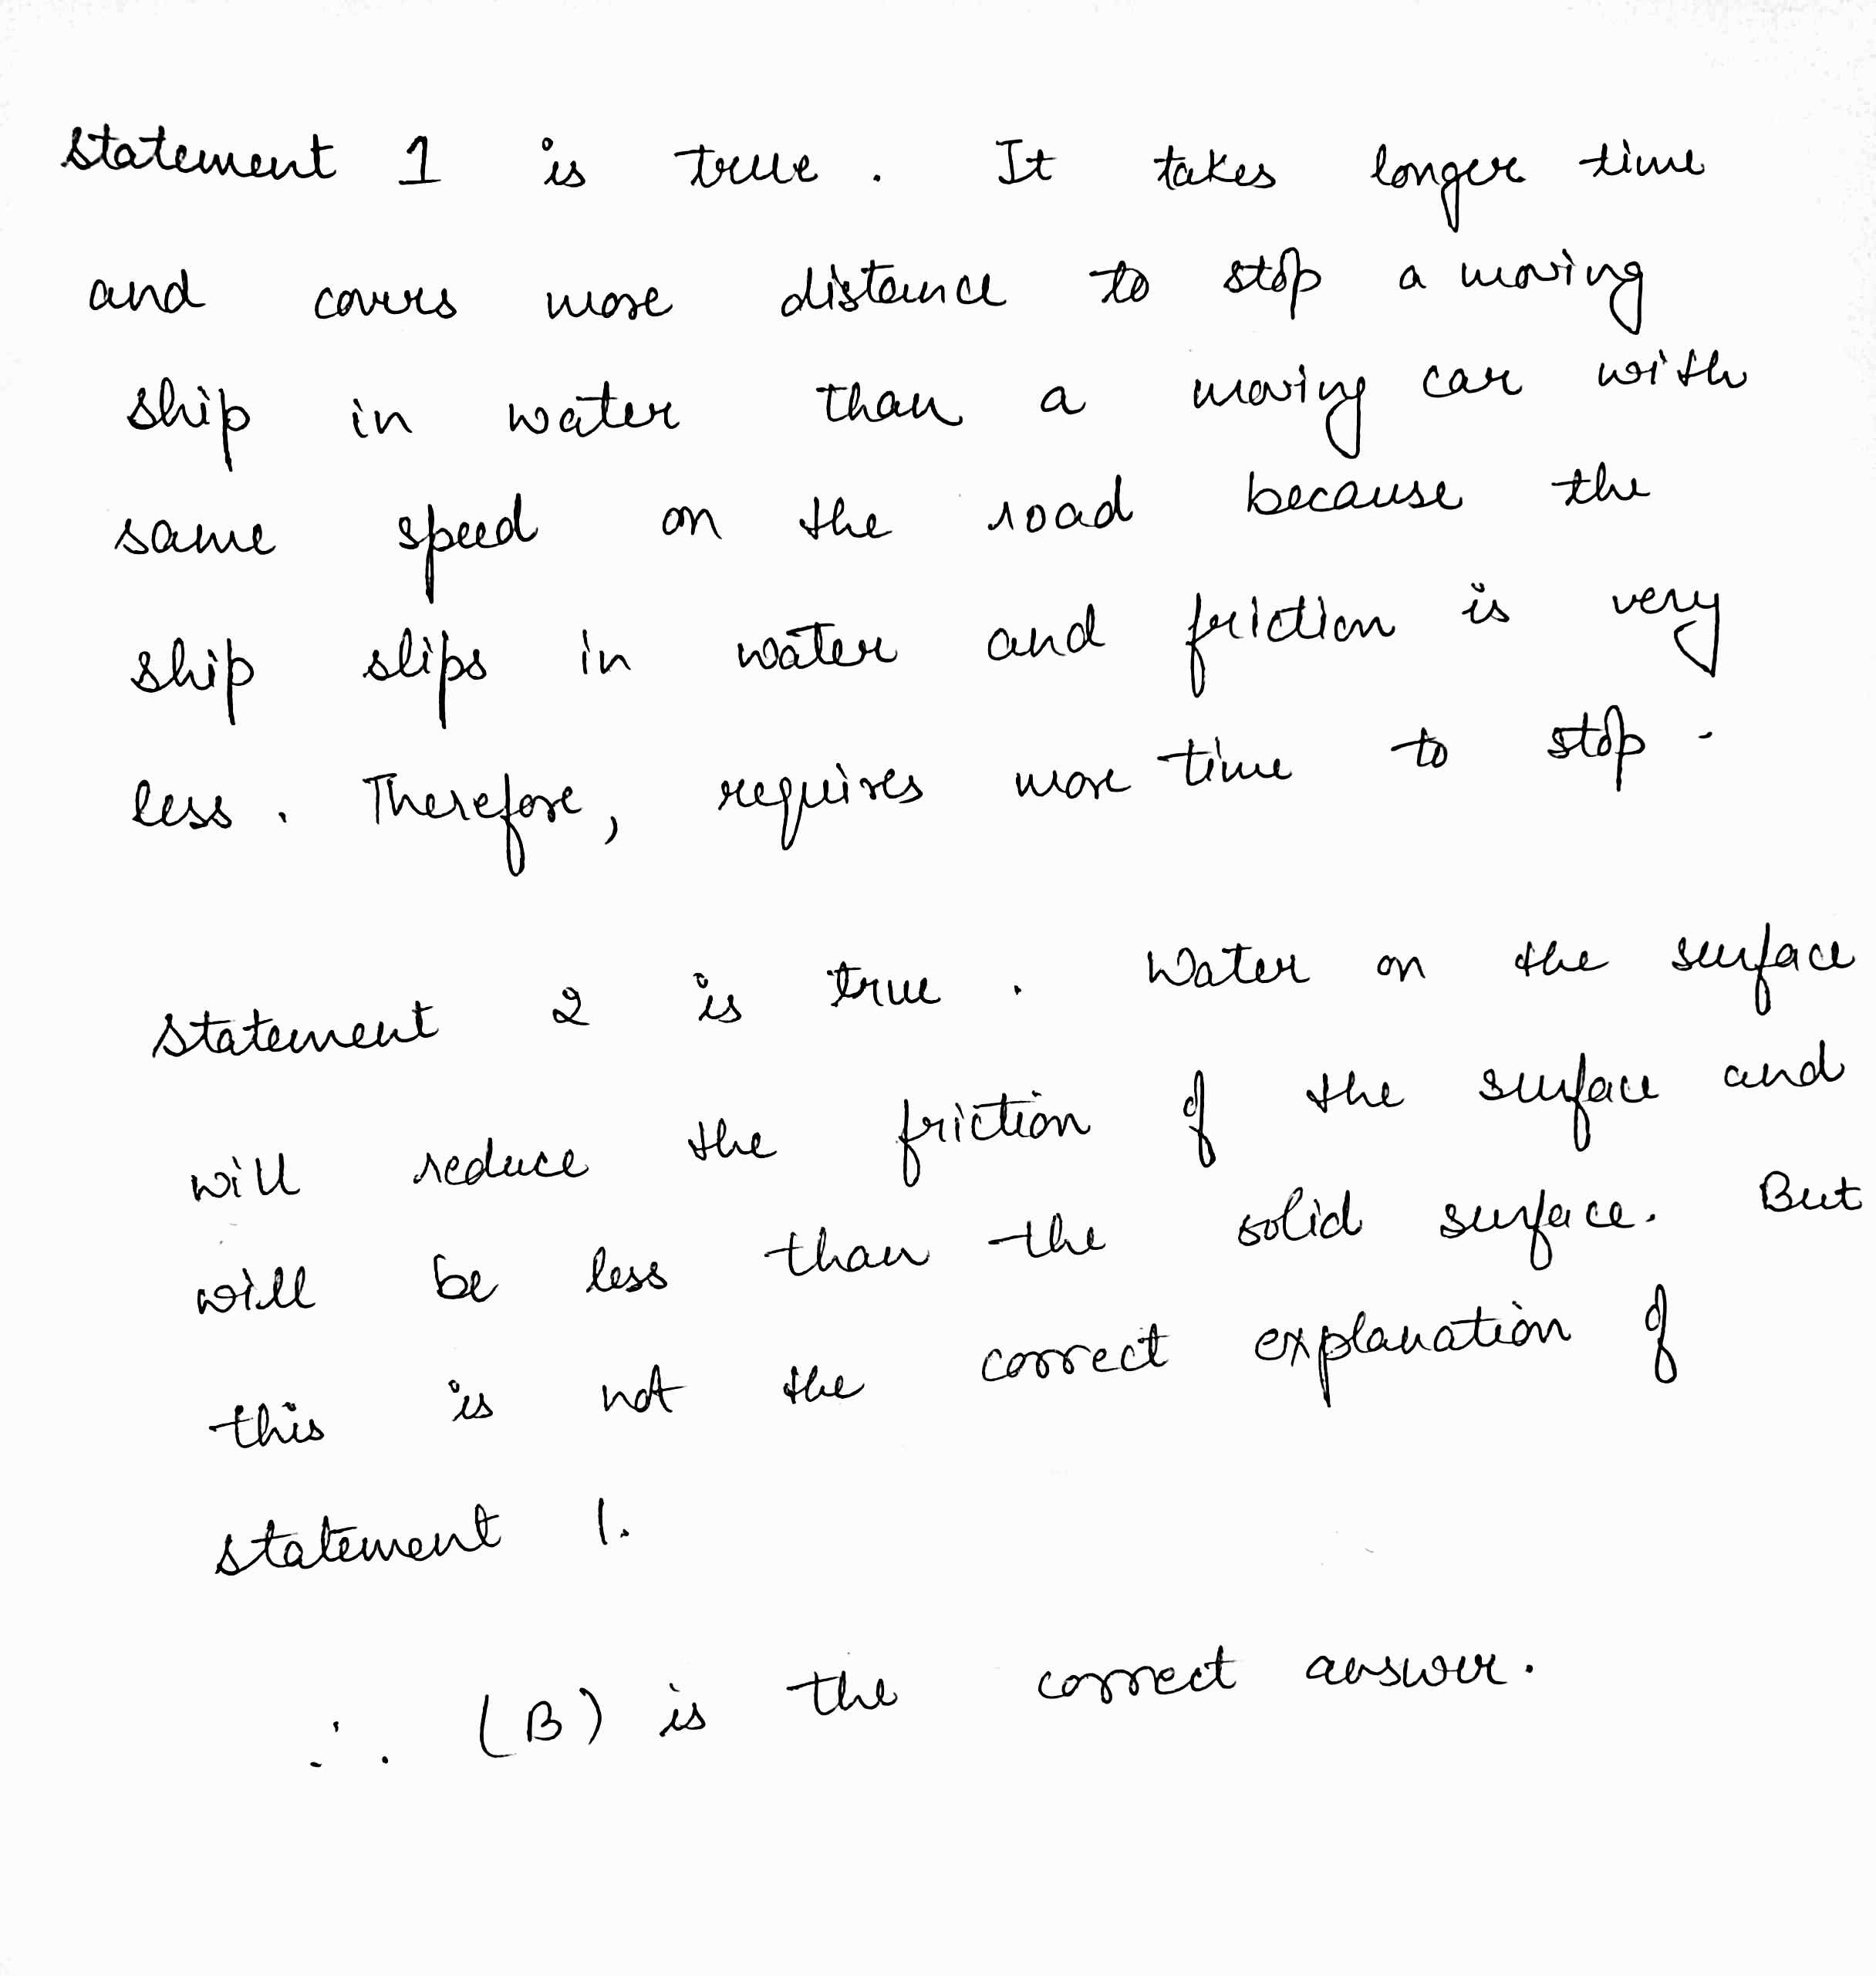 statement 1 is true. It takes longer time
and covers more distance to stop a moving
ship in water than a moving car with
same speed on the road because the
ship slips in water and friction is very
less. Therefore, requires more time to stop.
statement 2 is true. Water on the surface
will reduce the friction of the surface and
will be less than the solid surface. But
this is not the correct explanation of
statement 1.
∴ (B) is the correct answer.